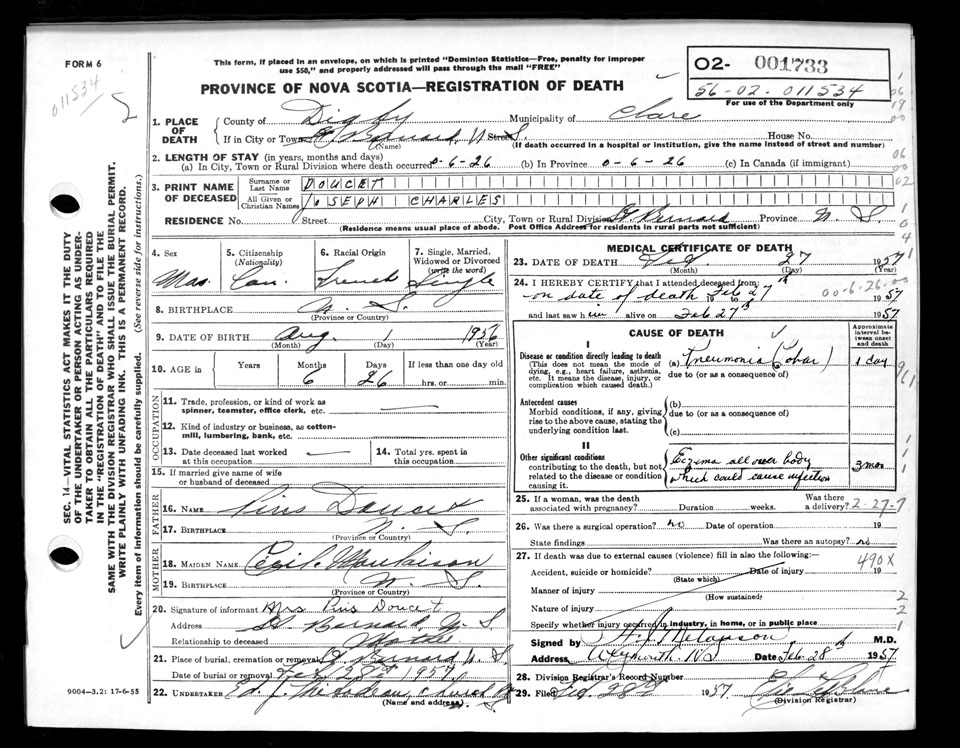 FORM 6
011534
This form, if placed in an envelope, on which is printed "Dominion Statistics—Free, penalty for improper
use $50," and properly addressed will pass through the mail "FREE"
02- 001733
56-02-011534
For use of the Department only
PROVINCE OF NOVA SCOTIA—REGISTRATION OF DEATH
1. PLACE OF DEATH
County of Digby Municipality of Clare
If in City or Town St. Bernard, N.S. Street House No.
(Name) (If death occurred in a hospital or institution, give the name instead of street and number)
2. LENGTH OF STAY (in years, months and days)
(a) In City, Town or Rural Division where death occurred 0-6-26 (b) In Province 0-6-26 (c) In Canada (if immigrant)
3. PRINT NAME OF DECEASED
Surname or Last Name DOUCET
All Given or Christian Names JOSEPH CHARLES
RESIDENCE No. Street City, Town or Rural Division St. Bernard Province N. S.
(Residence means usual place of abode. Post Office Address for residents in rural parts not sufficient)
4. Sex
Mas.
5. Citizenship
(Nationality)
Can.
6. Racial Origin
French
7. Single, Married,
Widowed or Divorced
(write the word)
Single
8. BIRTHPLACE N. S.
(Province or Country)
9. DATE OF BIRTH Aug. 1 1956
(Month) (Day) (Year)
10. AGE in Years Months Days If less than one day old
6 26 hrs. or min.
OCCUPATION
11. Trade, profession, or kind of work as
spinner, teamster, office clerk, etc. —
12. Kind of industry or business, as cotton-
mill, lumbering, bank, etc.
13. Date deceased last worked
at this occupation —
14. Total yrs. spent in
this occupation
15. If married give name of wife
or husband of deceased
FATHER
16. NAME Pius Doucet
17. BIRTHPLACE N. S.
(Province or Country)
MOTHER
18. MAIDEN NAME
19. BIRTHPLACE N. S.
(Province or Country)
20. Signature of informant Mrs Pius Doucet
Address St. Bernard, N. S.
Relationship to deceased Mother
21. Place of burial, cremation or removal St. Bernard N. S.
Date of burial or removal Feb. 1957
22. UNDERTAKER Ed. J. Church Pt
(Name and address) N. S.
MEDICAL CERTIFICATE OF DEATH
23. DATE OF DEATH Feb. 27 1957
(Month) (Day) (Year)
24. I HEREBY CERTIFY that I attended deceased from:
on date of death 19 to Feb 27th 1957
00-6-26-00
and last saw him alive on Feb 27th 1957
CAUSE OF DEATH
Approximate interval between onset and death
I
Disease or condition directly leading to death (a) Pneumonia (Lobar) 1 day
(This does not mean the mode of
dying, e.g., heart failure, asthenia,
etc. It means the disease, injury, or
complication which caused death.)
due to (or as a consequence of)
Antecedent causes
Morbid conditions, if any, giving
rise to the above cause, stating the
underlying condition last.
(b)
due to (or as a consequence of)
(c)
II
Other significant conditions
contributing to the death, but not
related to the disease or condition
causing it.
Eczema all over body 3 mon
which could cause infection
25. If a woman, was the death
associated with pregnancy? Duration weeks. Was there
a delivery?
2-27-7
26. Was there a surgical operation? no Date of operation 19
State findings Was there an autopsy? no
27. If death was due to external causes (violence) fill in also the following:
490X
Accident, suicide or homicide? Date of injury 19
(State which)
Manner of injury
(How sustained)
Nature of injury
Specify whether injury occurred in industry, in home, or in public place
Signed by M.D.
Address Weymouth. N.S. Date Feb. 28th 1957
28. Division Registrar's Record Number
29. Filed Feb. 28th 1957.
(Division Registrar)
9004—3.2: 17-6-55
SEC. 14—VITAL STATISTICS ACT MAKES IT THE DUTY
OF THE UNDERTAKER OR PERSON ACTING AS UNDER-
TAKER TO OBTAIN ALL THE PARTICULARS REQUIRED
IN THE "REGISTRATION OF DEATH" AND TO FILE THE
SAME WITH THE DIVISION REGISTRAR WHO SHALL ISSUE THE BURIAL PERMIT.
WRITE PLAINLY WITH UNFADING INK. THIS IS A PERMANENT RECORD.
Every item of information should be carefully supplied. (See reverse side for instructions.)